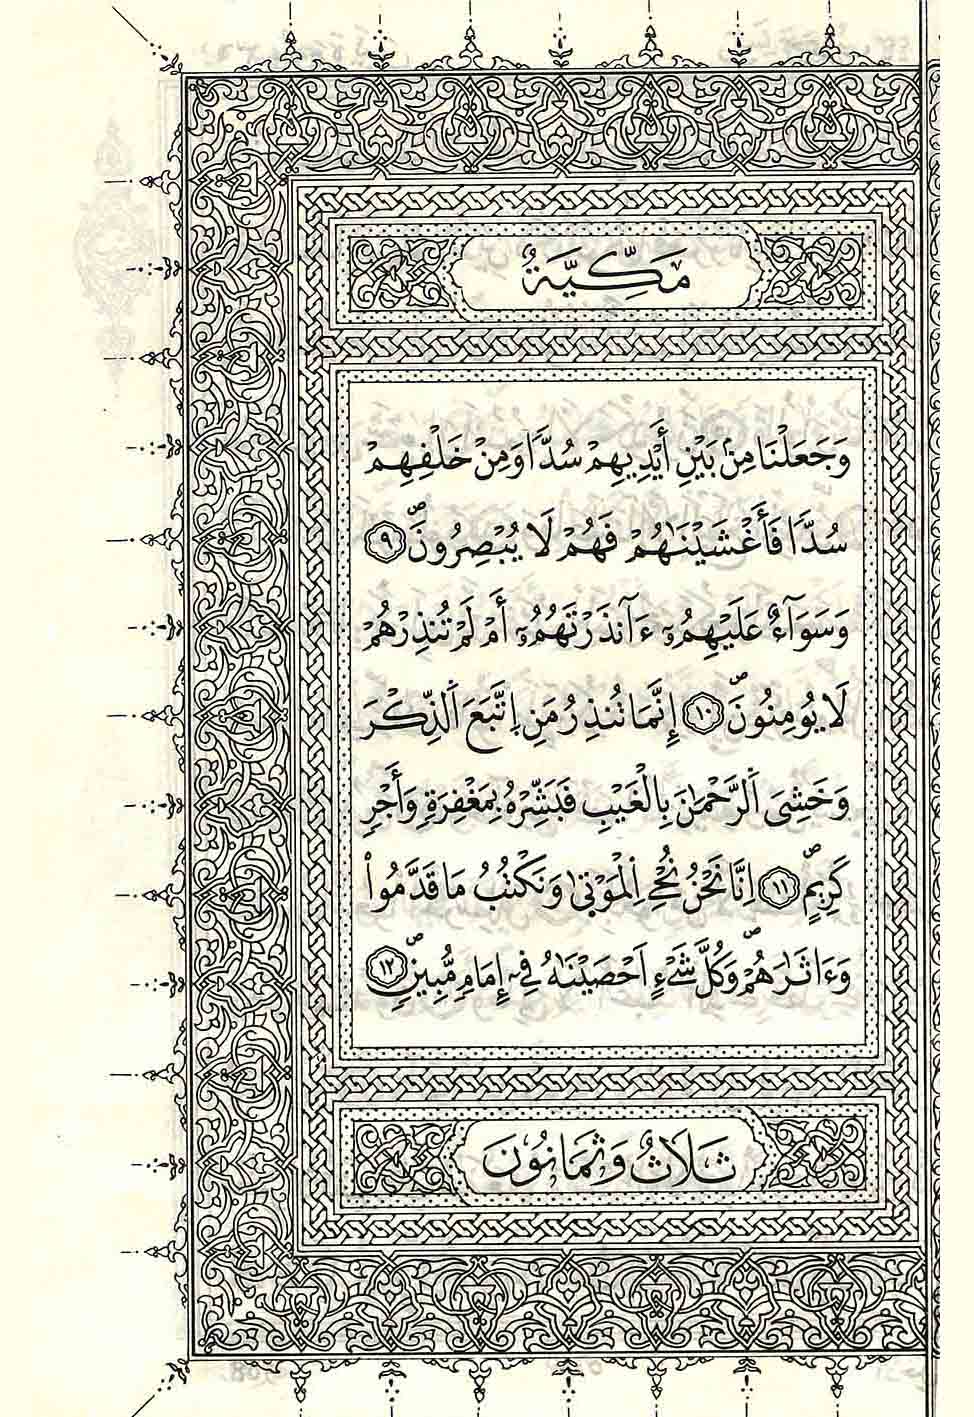 مَكِّيَّةٌ
وَجَعَلْنَا مِنۢ بَيْنِ أَيْدِيهِمْ سُدّٗا وَمِنْ خَلْفِهِمْ
سُدّٗا فَأَغْشَيْنَٰهُمْ فَهُمْ لَا يُبْصِرُونَۖ ۝٩
وَسَوَآءٌ عَلَيْهِمُۥٓ ءَآنذَرْتَهُمُۥٓ أَمْ لَمْ تُنذِرْهُمْ
لَا يُومِنُونَۖ ۝١٠ إِنَّمَا تُنذِرُ مَنِ اِتَّبَعَ اَلذِّكْرَ
وَخَشِيَ اَلرَّحْمَٰنَ بِالْغَيْبِ فَبَشِّرْهُ بِمَغْفِرَةٖ وَأَجْرٖ
كَرِيمٍۖ ۝١١ اِنَّا نَحْنُ نُحْيِ اِلْمَوْتَىٰ وَنَكْتُبُ مَا قَدَّمُواْ
وَءَاثَٰرَهُمْۖ وَكُلَّ شَےْءٍ اَحْصَيْنَٰهُ فِےٓ إِمَامٖ مُّبِينٖۖ ۝١٢
ثَلَاثٌ وَثَمَانُونَ